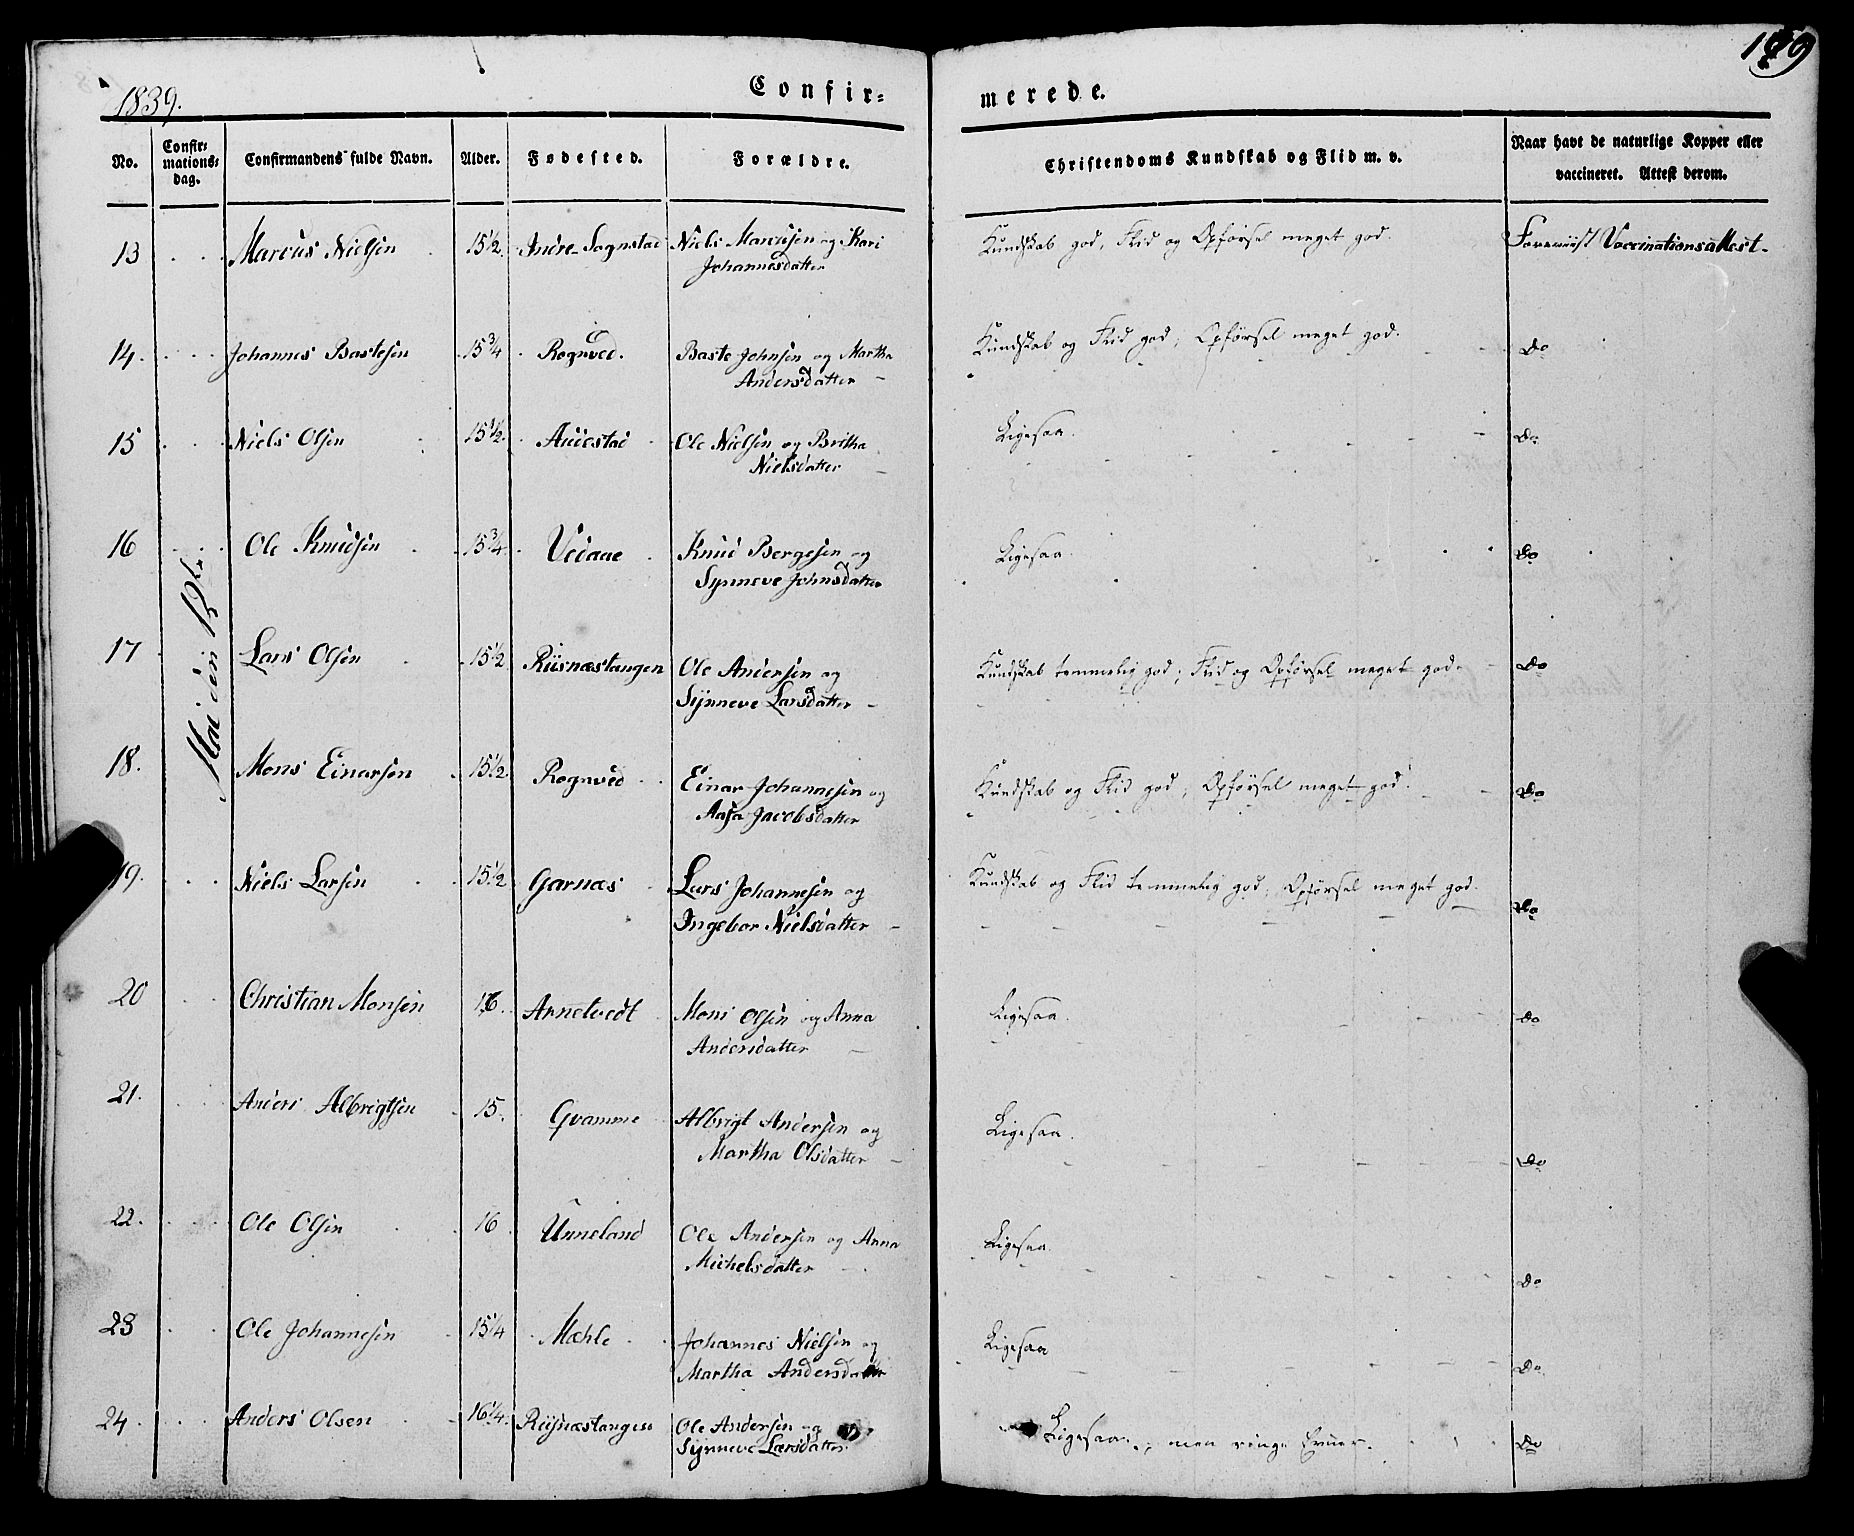 1839.
Confir=
merede.
No.
Confir=
mations=
dag.
Confirmandens fulde Navn.
Alder.
Fødested.
Forældre.
Christendoms Kundskab og Flid m. v.
Naar havt de naturlige Kopper eller
vaccineret. Attest derom.
Mai den 12te
13 Marcus Nielsen 15 1/2 Indre-Sognstad Niels Marcusen og Kari Kundskab god, Flid og Opførsel meget god. Foreviist Vaccinationsattest-
Johannesdatter
14. Johannes Bastesen 15 3/4 Rognved. Baste Johnsen og Martha Kundskab og Flid god; Opførsel meget god. Do
Andersdatter
15 Niels Olsen 15 1/2 Audestad Ole Nielsen og Britha Ligesaa. Do
Nielsdatter
16 Ole Knudsen 15 3/4 Vedaae Knud Bergesen og Ligesaa. Do
Synneve Johnsdatter
17 Lars Olsen 15 1/2 Riisnæstangen Ole Andersen og Kundskab temmelig god; Flid og Opførsel meget god. Do
Synneve Larsdatter
18. Mons Einarsen 15 1/2 Rognved Einar Johannesen og Kundskab og Flid god; Opførsel meget god. Do
Aasa Jacobsdatter
19. Niels Larsen 15 1/2 Garnæs Lars Johannesen og Kundskab og Flid temmelig god; Opførsel meget god. Do
Ingebor Nielsdatter
20 Christian Monsen 16 Arnetvedt Mons Olsen og Anna Ligesaa. Do
Andersdatter
21. Anders Albrigtsen 15. Qvamme Albrigt Andersen og Ligesaa. Do
Martha Olsdatter
22. Ole Olsen 16 Unneland Ole Andersen og Anna Ligesaa. Do
Michelsdatter
23 Ole Johannesen 15 1/4 Mæhle Johannes Nielsen og Ligesaa Do
Martha Andersdatter
24. Anders Olsen 16 1/4. Riisnæstangen Ole Andersen og Ligesaa; men ringe Evner. Do
Synneve Larsdatter